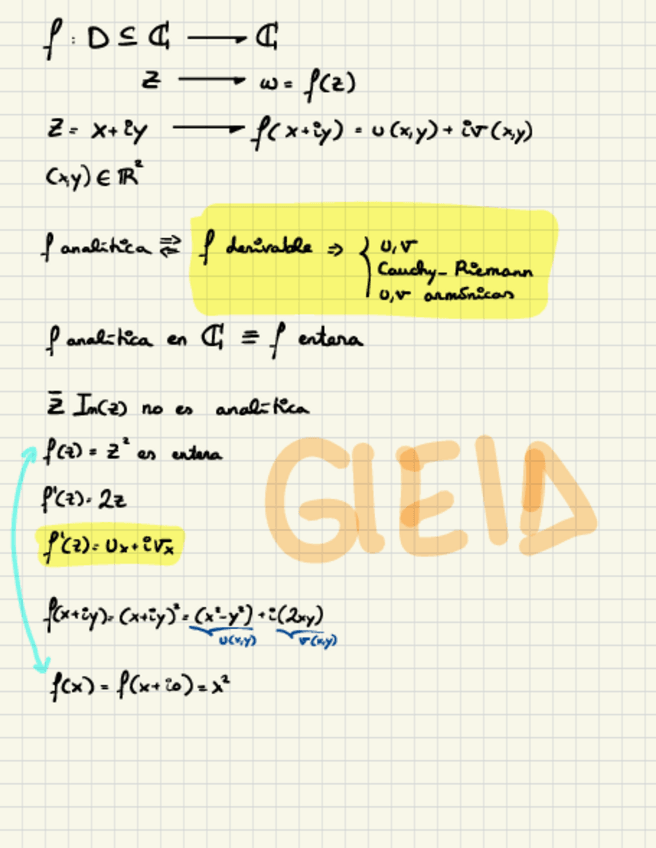 f : D ⊆ ℂ ⟶ ℂ
z ⟶ ω = f(z)
z = x+iy ⟶ f(x+iy) = u(x,y) + iv(x,y)
(x,y) ∈ ℝ²
f analítica ⇄ f derivable ⇒ { u,v
Cauchy-Riemann
u,v armónicas
f analítica en ℂ ≡ f entera
z̄ Im(z) no es analítica
f(z) = z² es entera
f'(z) = 2z
f'(z) = ux + ivx
f(x+iy) = (x+iy)² = (x²-y²) + i(2xy)
u(x,y) v(x,y)
f(x) = f(x+i0) = x²
GIEID